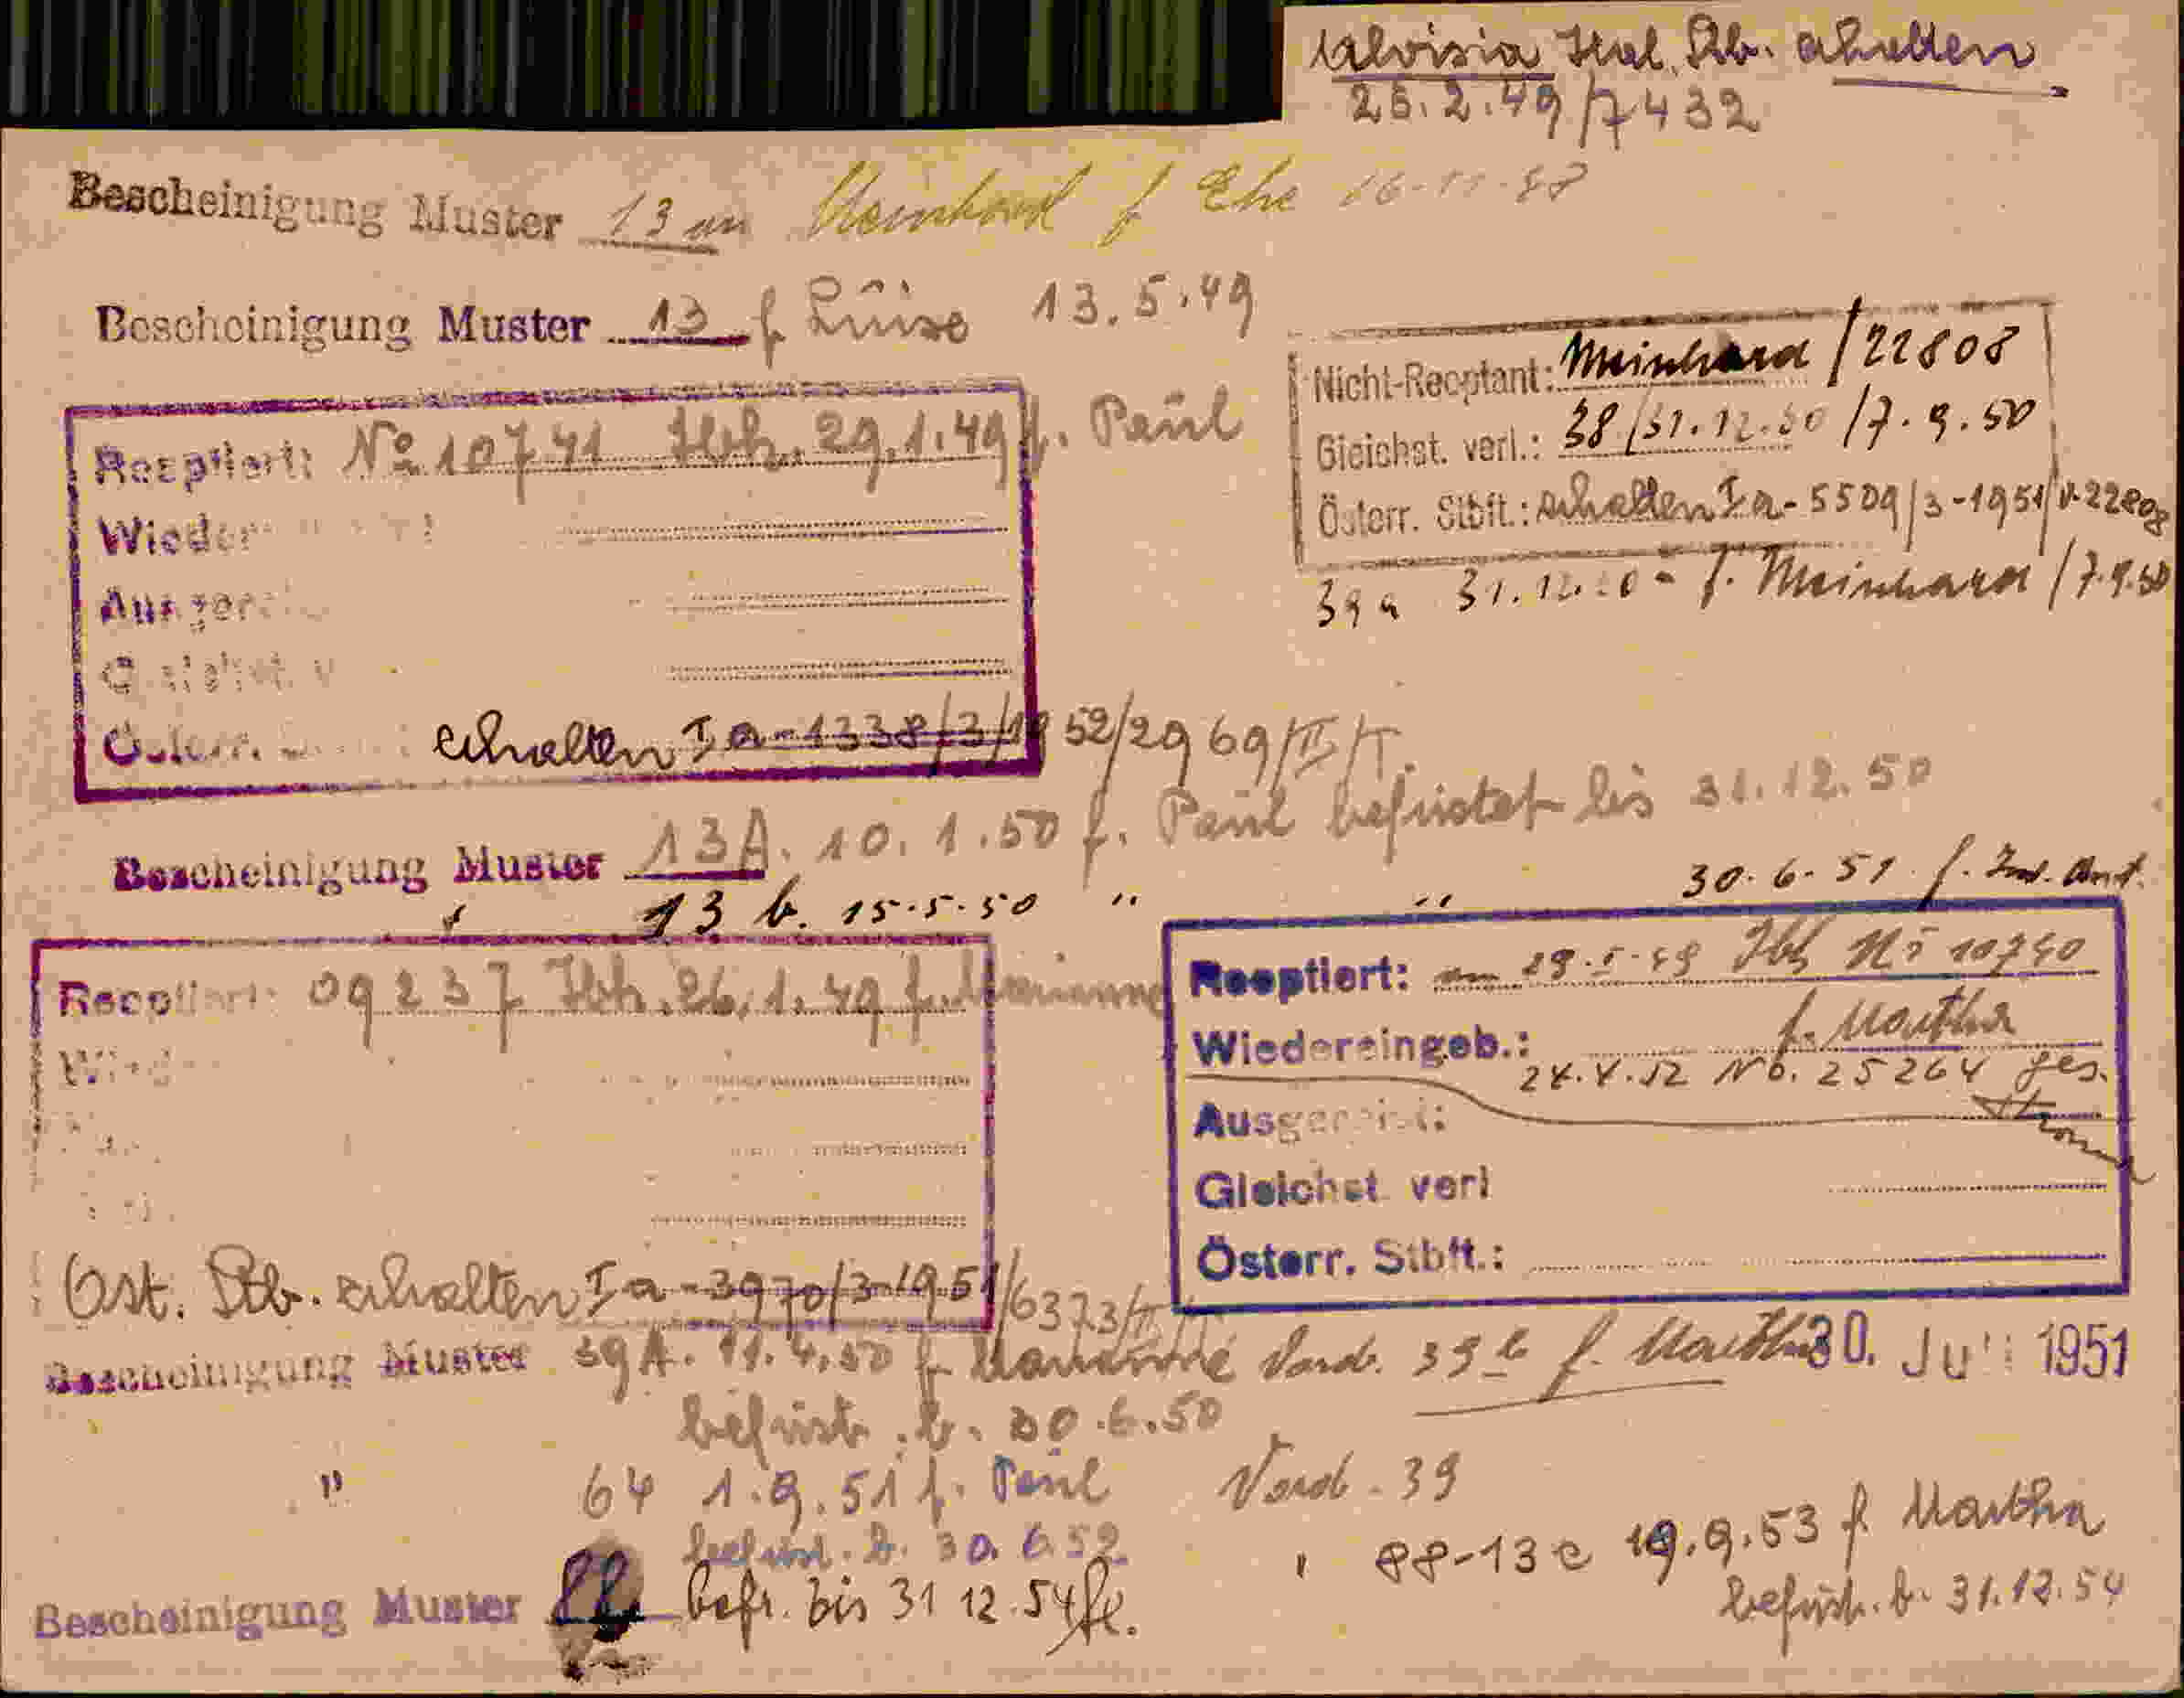 Aloisia Ital. Stb. erhalten
25.2.49/7432
Bescheinigung Muster 13 an Meinhard f Ehe 16-11-48
Bescheinigung Muster 13 f Luise 13.5.49
Nicht-Reoptant: Meinhard /22808
Gleichst. verl.: 38/31.12.50 /7.9.50
Österr. Stbft.: erhalten Ia-5509/3-1951/
39a 31.12.50 - f. Meinhard /7.9.50
Reoptiert: No 10741 Ibk. 29.1.49 f. Paul
Wieder
Ausgereist
Gleichst. v
Österr. erhalten Ia-1338/3/1952/2969/II/T.
Bescheinigung Muster 13A. 10.1.50 f. Paul befristet bis 31.12.50
13 b. 15.5.50 " " 30.6.51 f.
Reoptiert: 09237 Ibk. 26.1.49 f. Marianne
Öst. Stb. erhalten Ia-3970/3-1951/6373/II
Reoptiert: am 29.1.49 Ibk No 10740
f. Martha
Wiedereingeb.:
24.4.52 No. 25264 ges.
Ausgereist:
Gleichst. verl
Österr. Stbft.:
Bescheinigung Muster 39A. 11.4.50 f. Marianne
befrist. b. 30.6.50
Vord. 39 b f. Martha 30. Juli 1951
" 64 1.9.51 f. Paul
befrist. b. 30.6.52
Vord. 39
" 88-13c 19.9.53 f Martha
befrist. b. 31.12.54
Bescheinigung Muster 88 befr. bis 31 12.54